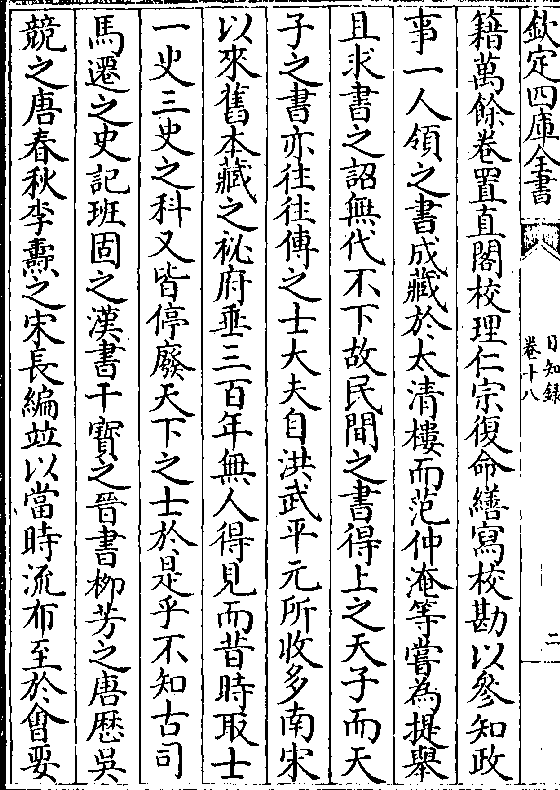 欽定四庫全書
日知錄
卷十八
二
籍萬餘卷置直閣校理仁宗復命繕寫校勘以參知政
事一人領之書成藏於太清樓而范仲淹等嘗為提舉
且求書之詔無代不下故民間之書得上之天子而天
子之書亦往往傳之士大夫自洪武平元所收多南宋
以來舊本藏之祕府垂三百年無人得見而昔時取士
一史三史之科又皆停廢天下之士於是乎不知古司
馬遷之史記班固之漢書干寶之晉書柳芳之唐歷吳
競之唐春秋李燾之宋長編並以當時流布至於會要